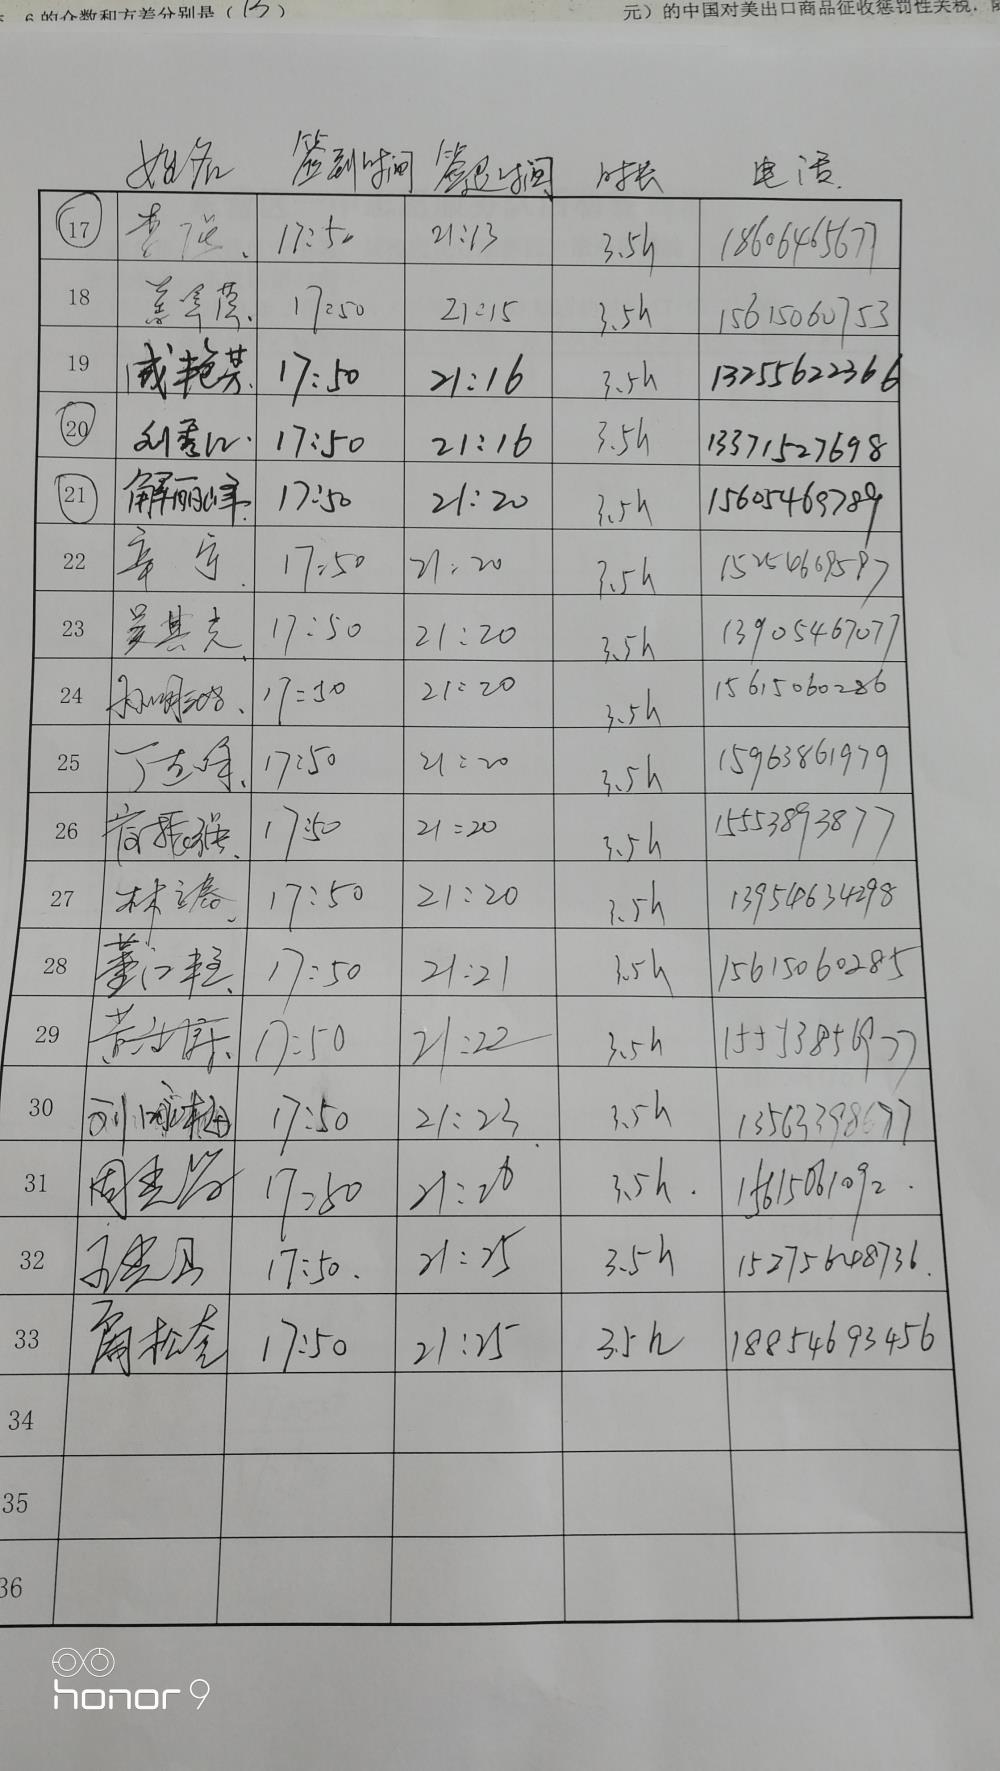 6的众数和方差分别是（13）
元）的中国对美出口商品征收惩罚性关税.
姓名 签到时间 签退时间 时长 电话
17 李 17:50 21:13 3.5h 18606465677
18 17:50 21:15 3.5h 15615060753
19 成艳芳 17:50 21:16 3.5h 13255622366
20 刘秀江 17:50 21:16 3.5h 13371527698
21 解丽峰 17:50 21:20 3.5h 15605469789
22 辛宁 17:50 21:20 3.5h 15254669597
23 吴其克 17:50 21:20 3.5h 13905467077
24 17:50 21:20 3.5h 15615060286
25 丁立峰 17:50 21:20 3.5h 15963861979
26 17:50 21:20 3.5h 15553893877
27 林 17:50 21:20 3.5h 13954634298
28 董江 17:50 21:21 3.5h 15615060285
29 17:50 21:22 3.5h
30 刘 17:50 21:23 3.5h 13563398677
31 周 17:50 3.5h. 15615061092.
32 王 17:50. 21:25 3.5h 15275648736.
33 周松奎 17:50 21:25 3.5h 18854693456
34
35
36
honor 9